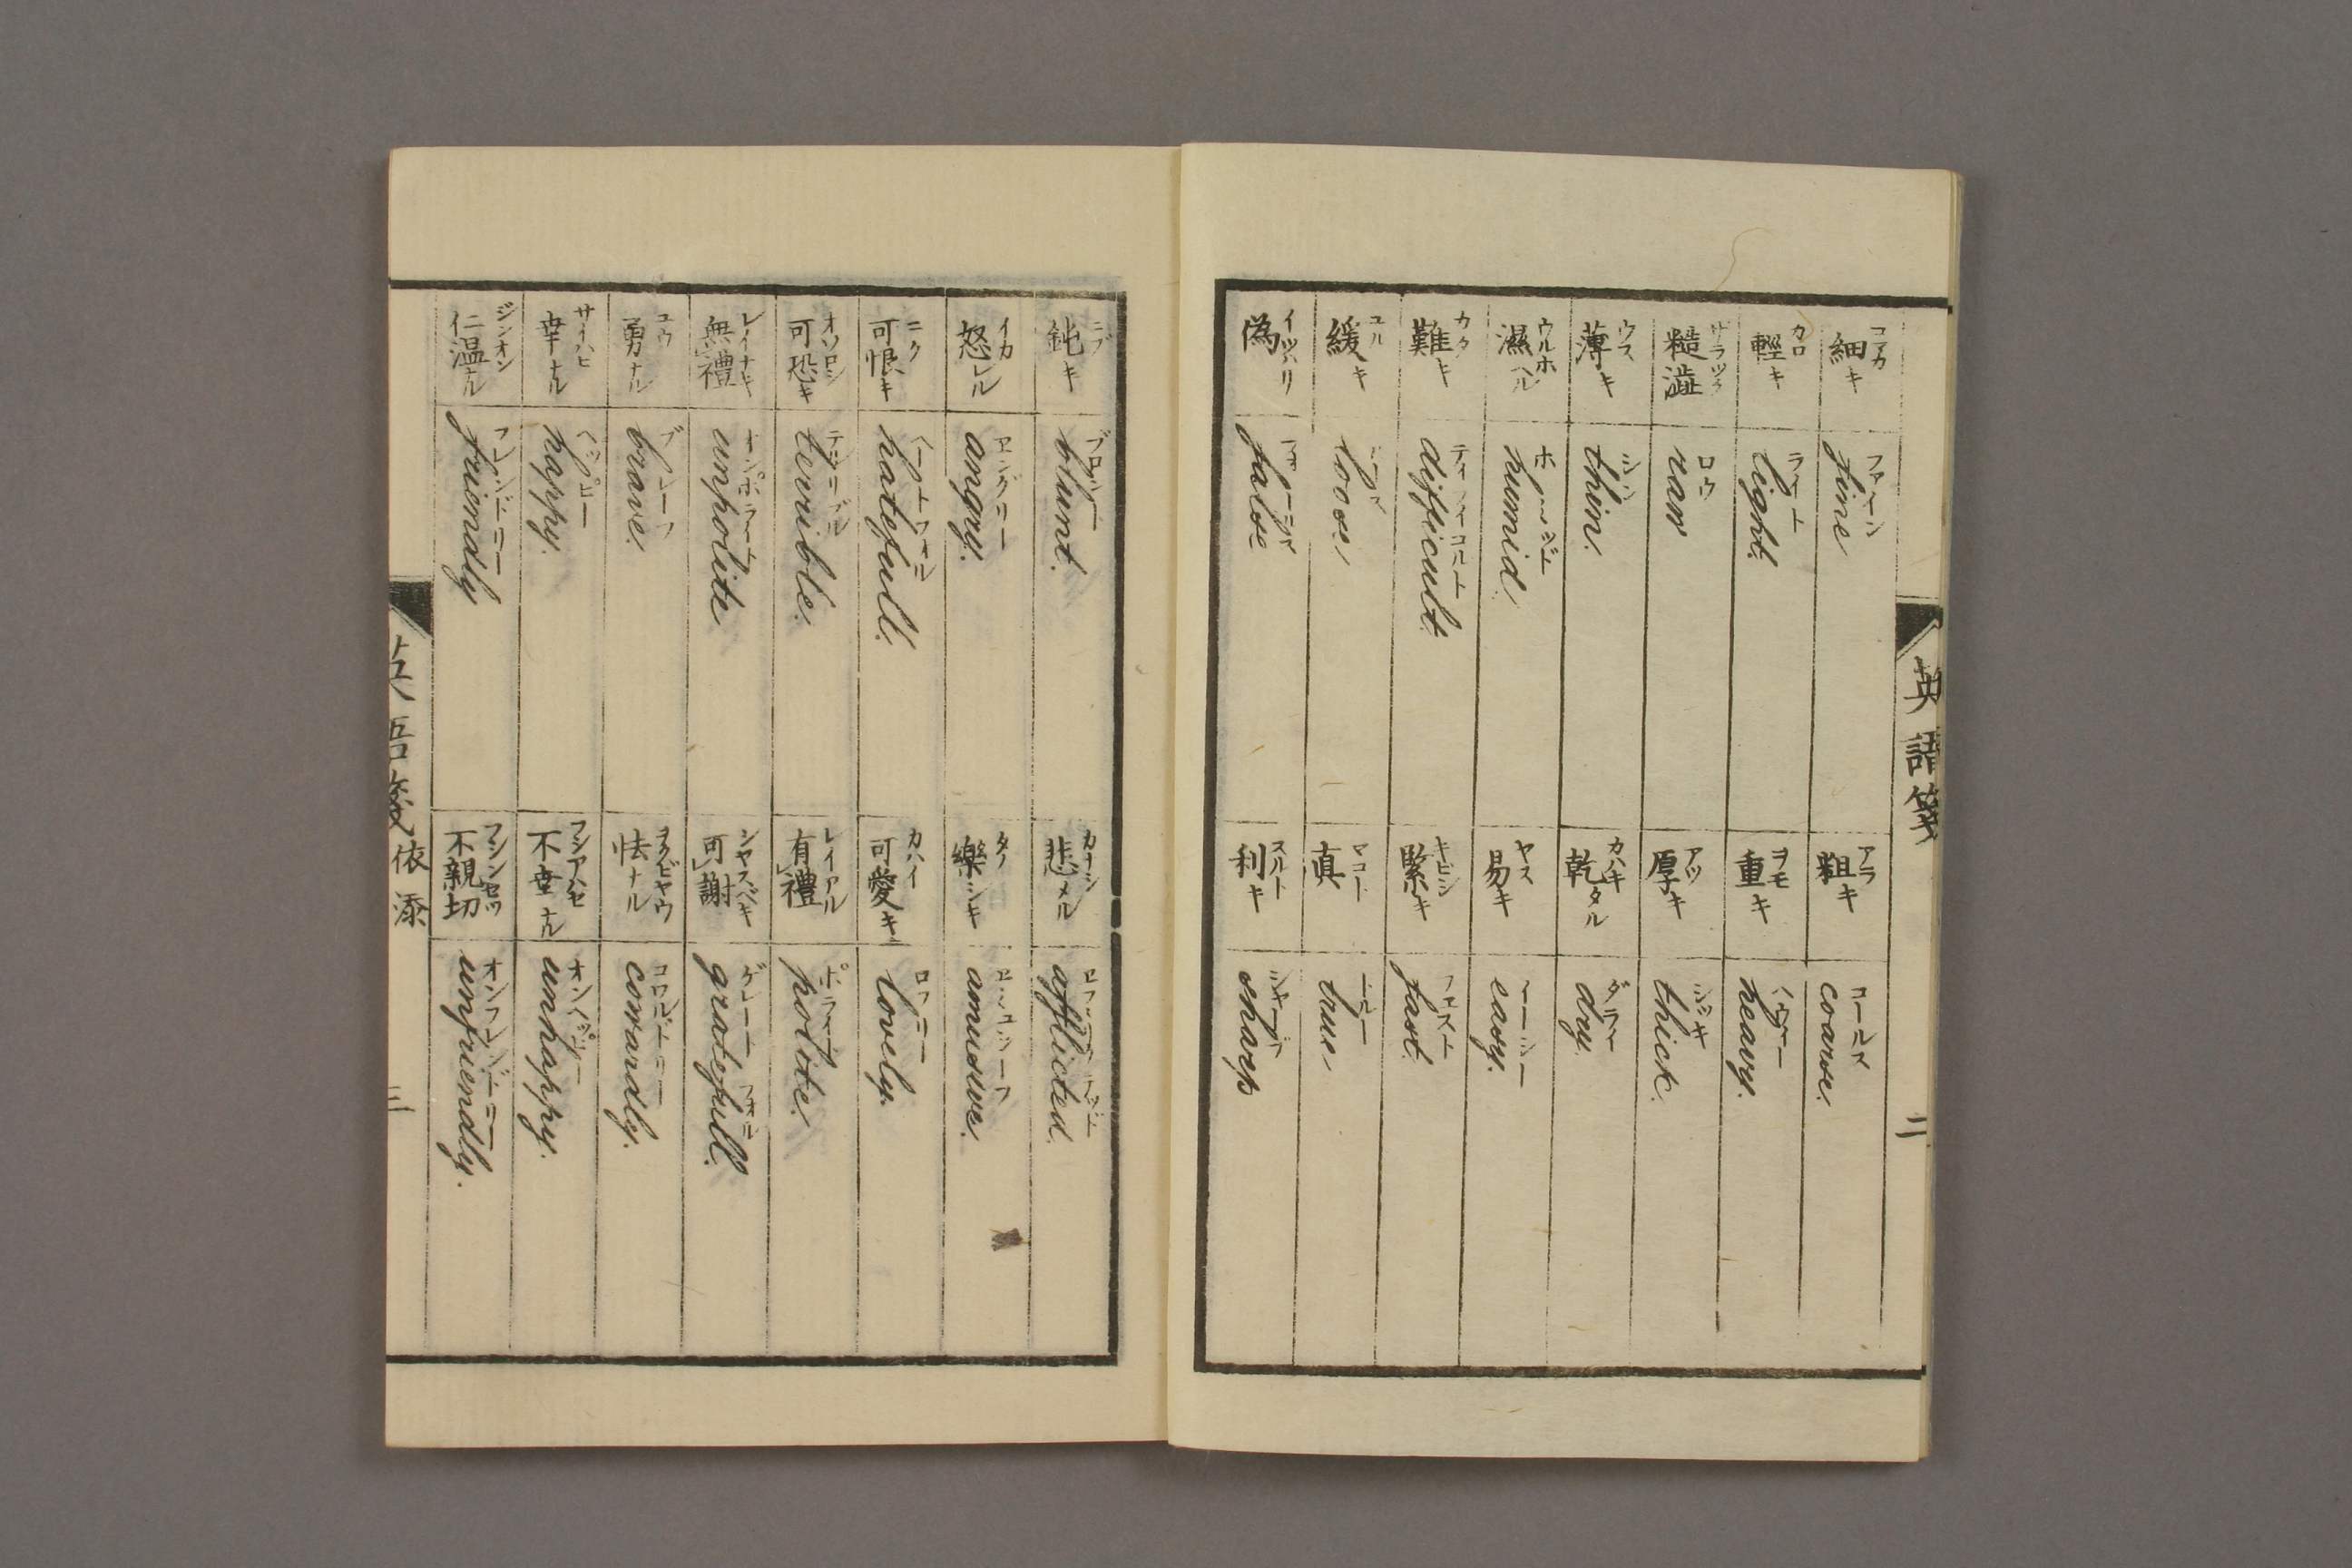 英語箋 二
細キ コマカ fine ファイン
粗キ アラ coarse. コールス
輕キ カロ light. ライト
重キ ヲモ heavy. ヘヴィー
糙澁 ザラツク raw ロウ
厚キ アツ thick. シッキ
薄キ ウス thin. シン
乾タル カハキ dry. ダライ
濕ヘル ウルホ humid.
易キ ヤス easy. イーシー
難キ カタ difficult. ティフィコルト
緊キ キビシ fast. フェスト
緩キ ユル loose.
真 マコト true トルー
偽 イツハリ false
利キ スルト sharp
鈍キ ニブ blunt.
悲メル カナシ afflicted.
怒レル イカ angry. エングリー
樂シキ タノ amusive. エミュシーフ
可恨キ ニク hatefull.
可愛キ カハイ lovely. ロフリー
可恐キ オソロシ terrible. テッリブル
有禮 レイアル polite. ポライト
無禮 レイナキ unpolite オンポライト
可謝 シヤスベキ gratefull. ゲレートフォル
勇ナル ユウ brave. ブレーフ
怯ナル ヲクビヤウ cowardly. コワルドリー
幸ナル サイハヒ happy. ヘッピー
不幸ナル フシアハセ unhappy. オンヘッピー
仁温ナル ジンオン friendly フレンドリー
不親切 フシンセツ unfriendly. オンフレンドリー
英語箋 依添 三